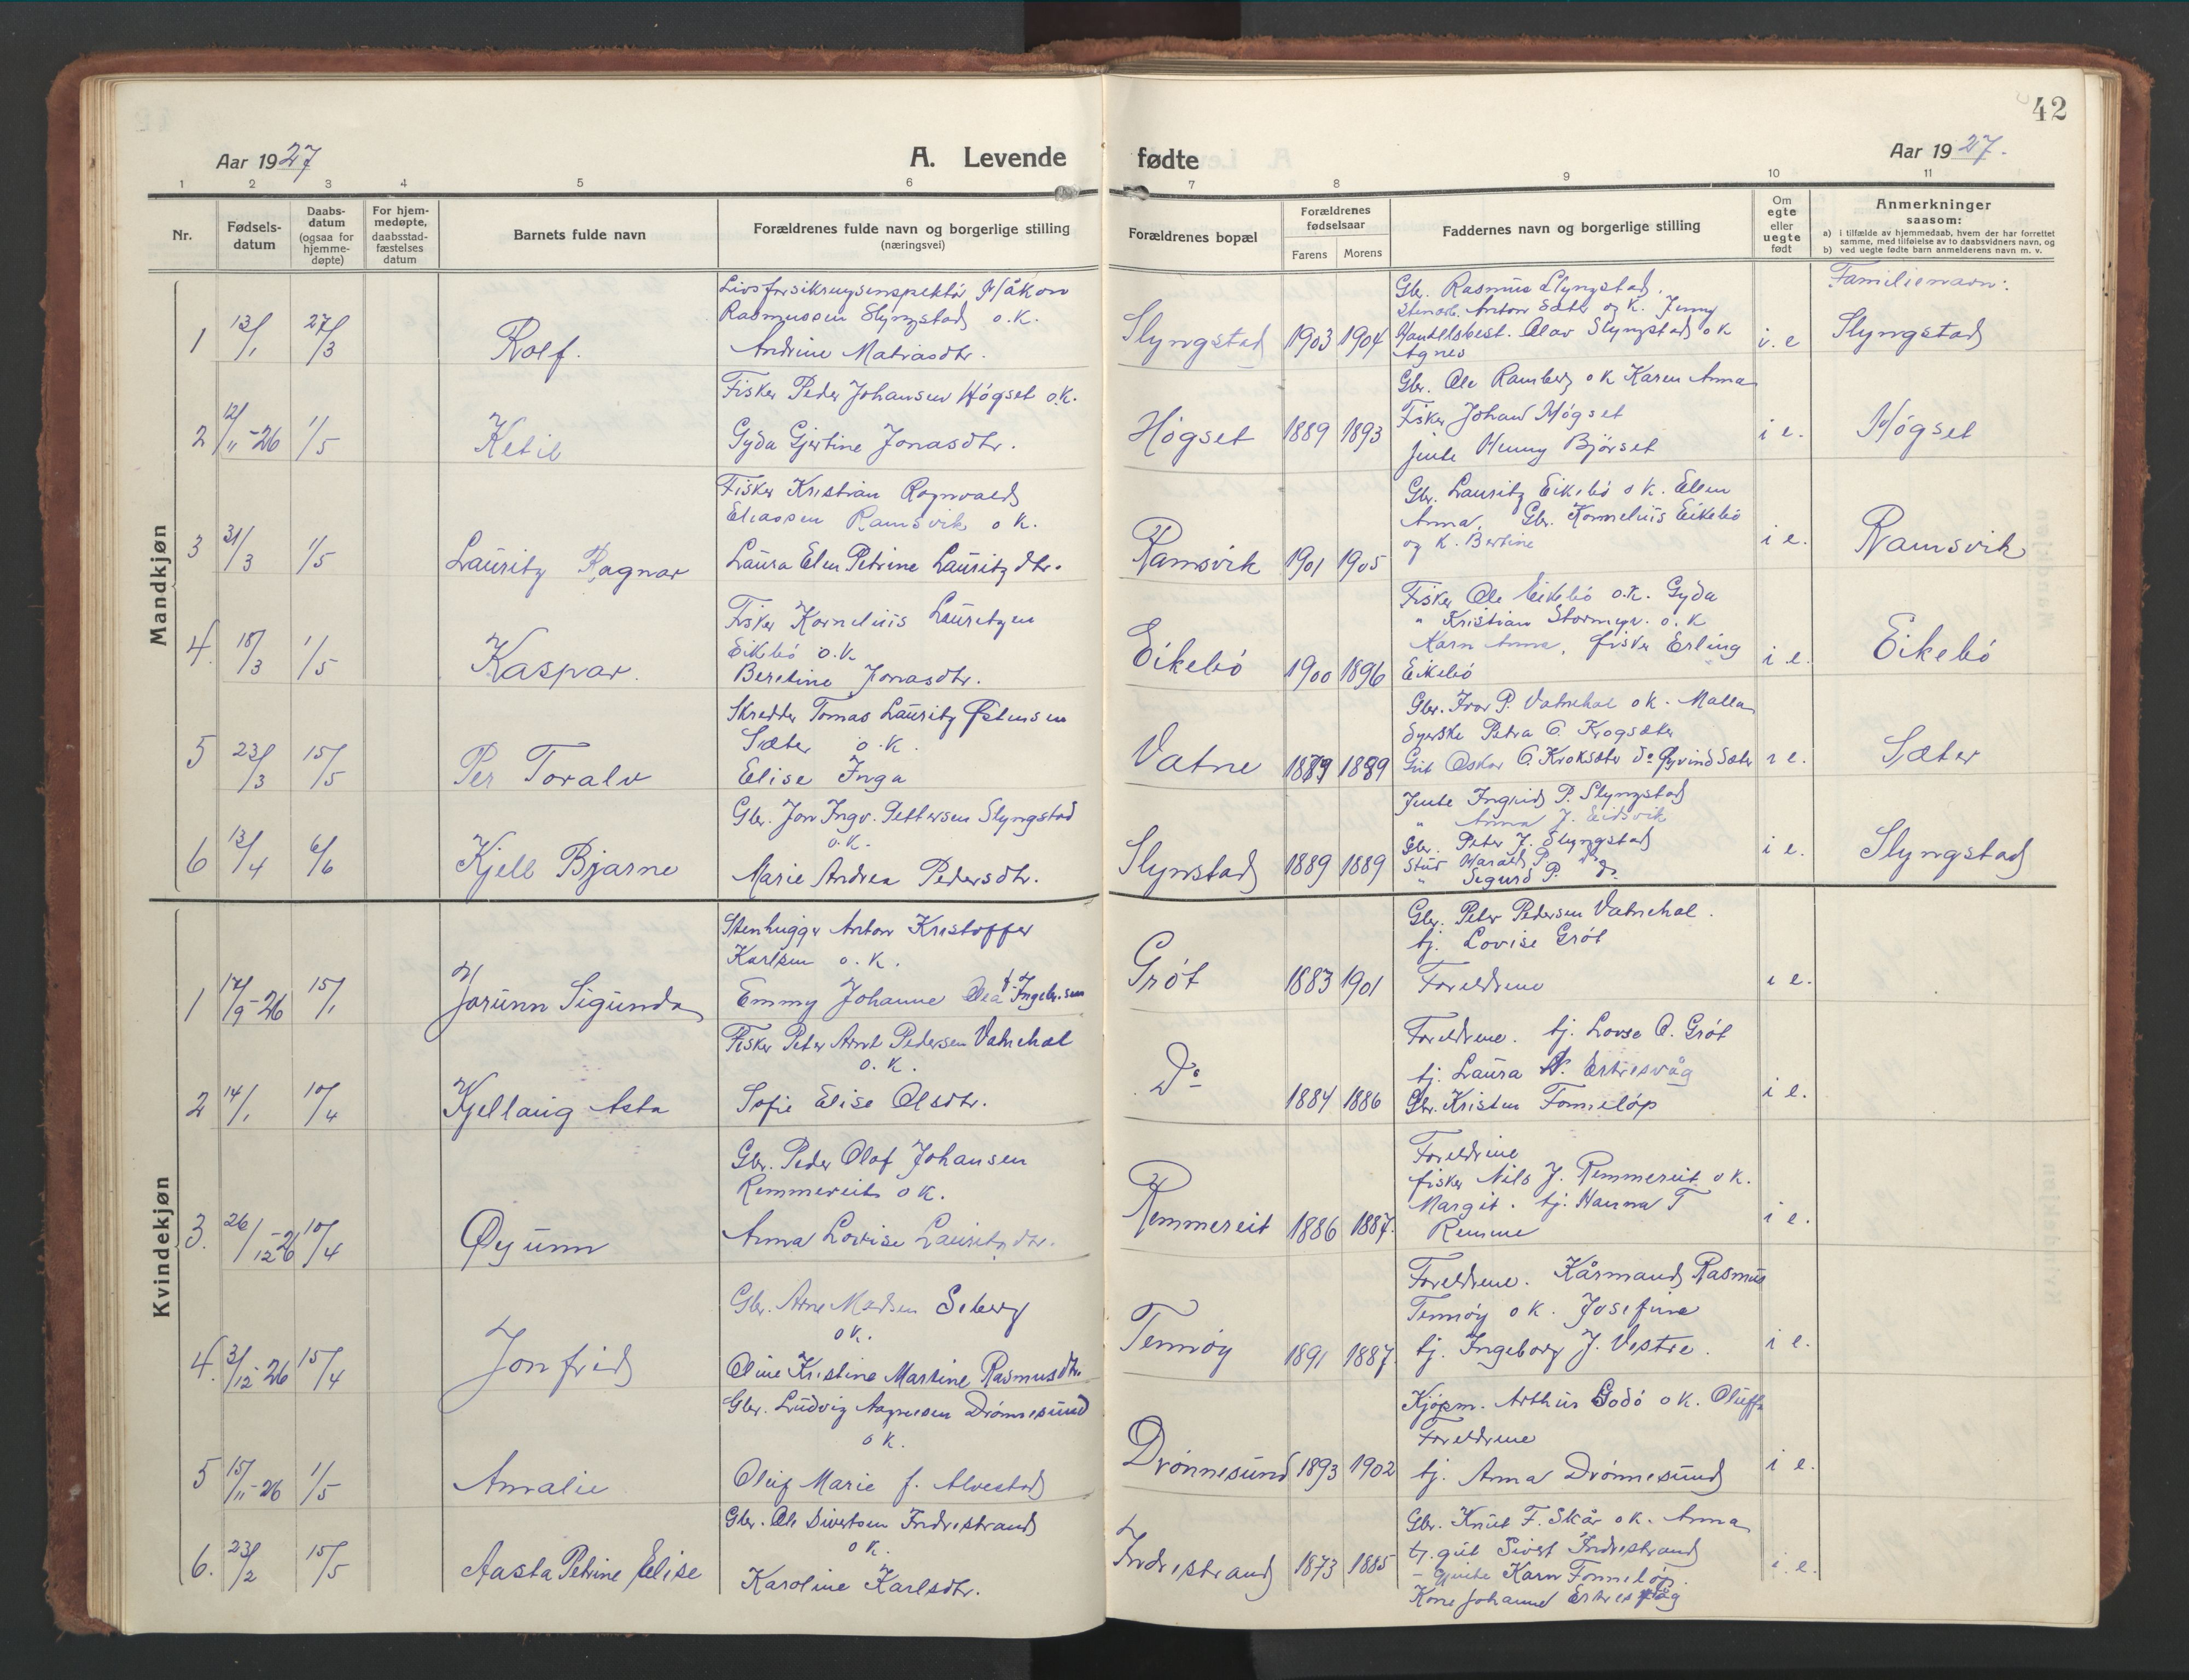 42
Aar 1927
A. Levende fødte
Aar 1927.
1 2 3 4 5 6 7 8 9 10 11
Nr.
Fødsels-
datum
Daabs-
datum
(ogsaa for
hjemme-
døpte)
For hjem-
medøpte,
daabsstad-
fæstelses
datum
Barnets fulde navn
Forældrenes fulde navn og borgerlige stilling
(næringsvei)
Forældrenes bopæl
Forældrenes
fødselsaar
Farens Morens
Faddernes navn og borgerlige stilling
Om
egte
eller
uegte
født
Anmerkninger
saasom:
a) i tilfælde av hjemmedaab, hvem der har forrettet
samme, med tilføielse av to daabsvidners navn, og
b) ved uegte fødte barn anmelderens navn m. v.
Familienavn:
Mandkjøn
1 13/1 27/3
Rolf.
Livsforsikringsinspektør Håkon
Rasmussen Slyngstad o.K.
Andrine Matiasdtr.
Slyngstad 1903 1904
Gbr. Rasmus Slyngstad.
Stenarb. Anton Sæter og K. Jenny
Handelsbest. Olav Slyngstad o K
Agnes
i. e
Slyngstad
2 12/11-26 1/5
Ketil
Fisker Peder Johansen Høgset o.K.
Gyda Gjertine Jonasdtr.
Høgset 1889 1893
Gbr. Ole Ramberg o K Karen Anna
Fisker Johan Høgset
Jente Henny Bjørset
i e.
Høgset
3 31/3 1/5
Lauritz Ragnar
Fisker Kristian Ragnvald
Eliassen Ramsvik o K.
Laura Elen Petrine Lauritzdtr.
Ramsvik 1901 1905
Gbr. Lauritz Eikebø o K. Elen
Anna, Gbr. Kornelius Eikebø
og K. Bertine
i e.
Ramsvik
4. 18/3 1/5
Kaspar.
Fisker Kornelius Lauritzen
Eikebø o.K
Beretine Jonasdtr.
Eikebø 1900 1896
Fisker Ole Eikebø o.K. Gyda
" Kristian Stormyr. o. K
Karn Anna, fisker Erling
Eikebø
i e.
Eikebø
5 23/3 15/5
Per Toralv
Skredder Tomas Lauritz Østensen
Sæter o. K.
Elise Inga
Vatne 1879 1889
Gbr. Ivar P. Vatnehal o K. Malla
Syerske Petra O. Krogsæter
Gut Oskar O. Kroksæter do Øyvind Sæter
i e.
Sæter
6 13/4 6/6
Kjell Bjarne
Gbr. Jon Ingv. Pettersen Slyngstad
o. K.
Marie Andrea Pedersdtr.
Slynstad 1889 1889
Jente Ingrid P. Slyngstad
" Anna J. Eidsvik
Gbr. Peter J. Slyngstad
Stud Harald P. do
" Sigurd P. do
i e.
Slyngstad
Kvindekjøn
1 17/9-26 15/1
Jorunn Sigunda
Stenhugger Anton Kristoffer
Karlsen o. K.
Emmy Johanne Olea f. Ingebr.sen
Grøt 1883 1901
Gbr. Peter Pedersen Vatnehal.
tj. Lovise Grøt
Foreldrene
i e.
2 14/1 10/4
Kjellaug Asta
Fisker Peter Arnt Pedersen Vatnehal
o. K.
Sofie Elise Olsdtr.
Do 1884 1886
Foreldrene. tj. Lovse O. Grøt
tj. Laura A. Ertresvåg
Gbr. Kristen Tonneløp
i e.
3. 26/12-26 10/4
Øyunn
Gbr. Peder Olaf Johansen
Remmereit o K.
Anna Lovise Lauritzdtr.
Remmereit 1886 1887.
Foreldrene
fisker Nils J. Remmereit o K.
Margit. tj. Hanna T
Remme
i e.
4. 3/12-26 15/4
Jonfrid
Gbr. Arne Madsen Seberg
o K.
Oline Kristine Martine Rasmusdtr.
Tennøy 1891 1887.
Foreldrene. Kårmand Rasmus
Tennøy o K. Josefine
tj. Ingeborg J. Vestre.
i e.
5 15/11-26 1/5
Amalie
Gbr. Ludvig Aagesen Drønnesund
o K.
Oluf Marie f. Alvestad
Drønnesund 1893 1902
Kjøpm. Arthur Godø o K. Oluffa
Foreldrene
tj. Anna Drønnesund
i e.
6. 23/2 15/5
Aasta Petrine Elise
Gbr. Ole Sivertsen Indrestrand
o K.
Karoline Karlsdtr.
Indrestrand 1873 1885
Gbr. Knut F. Skår o K. Anna
tj. gut Sivert Indrestrand
- Gjente Karn Tonneløp.
Kone Johanne Ertresvåg
i. e.